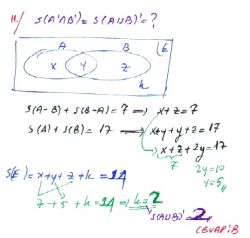 11./ S(A'∩B') = S(A∪B)' = ?
A B E
x y z
k
S(A-B) + S(B-A) = 7 ⟹ x+z=7
S(A) + S(B) = 17 ⟹ x+y+y+z=17
x+z+2y=17
7 2y=10
y=5
S(E) = x+y+z+k=14
7+5+k=14 ⟹ k=2
S(A∪B)' = 2
CEVAP: B